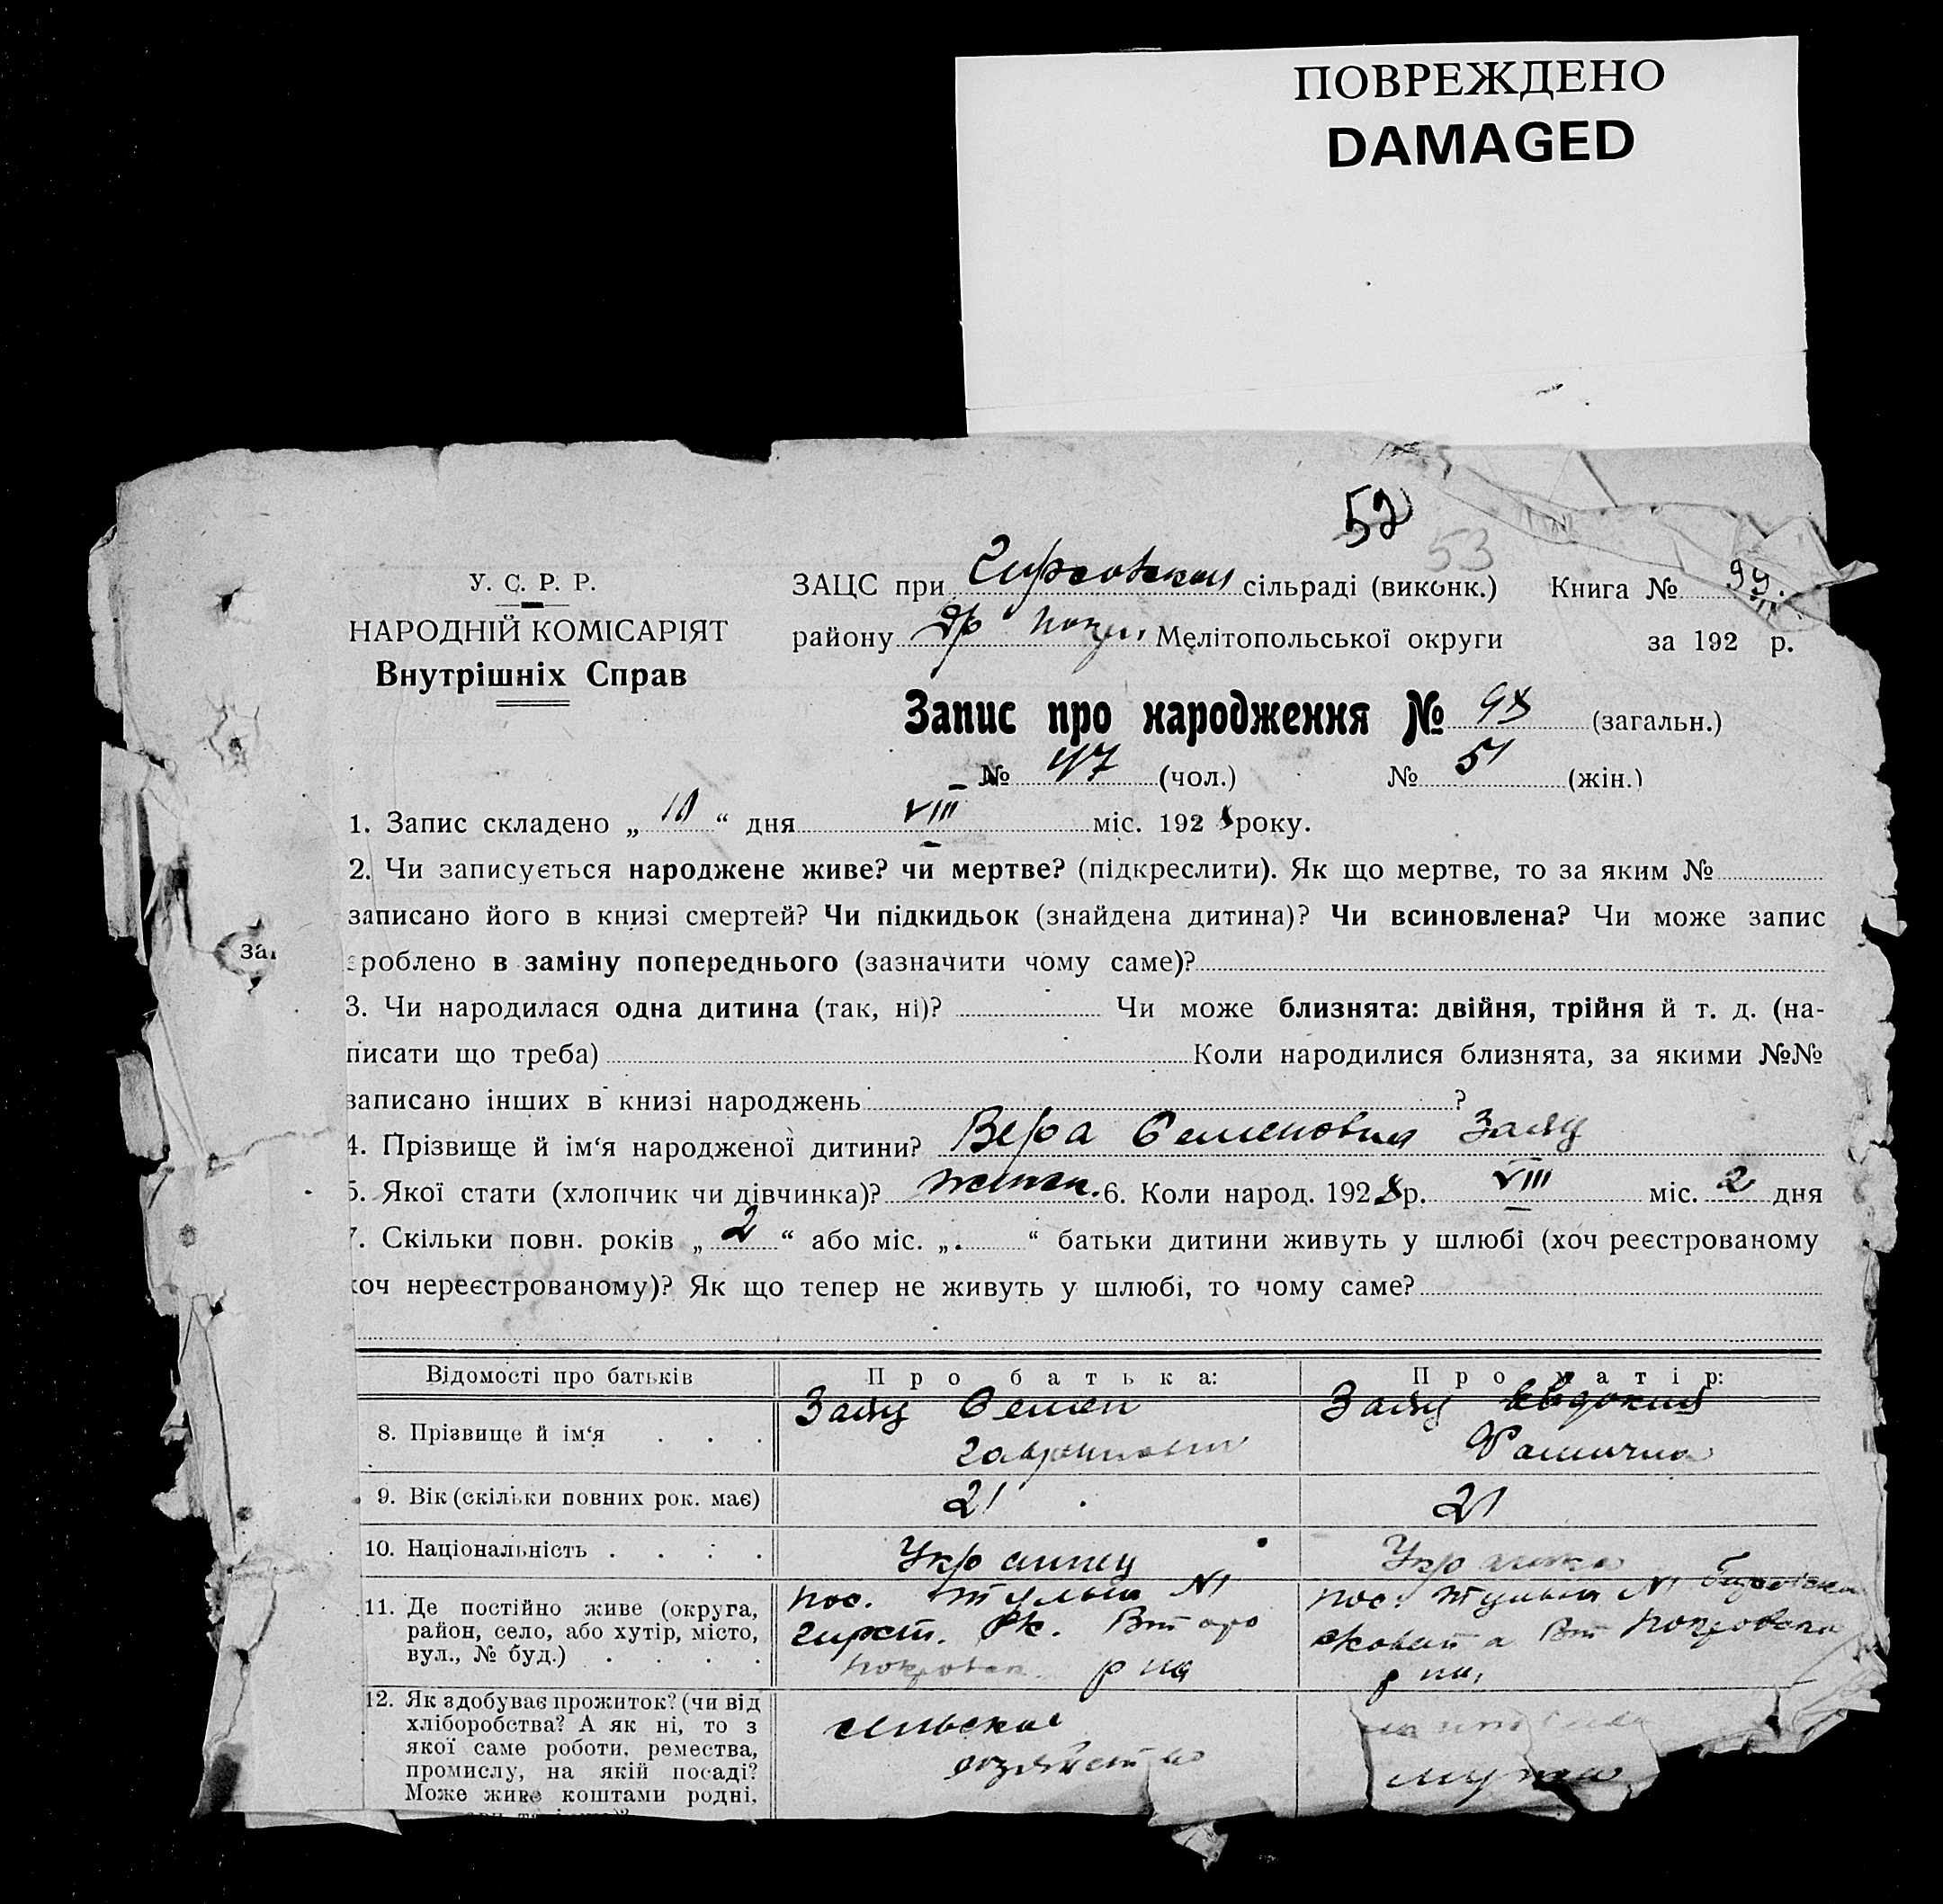 ПОВРЕЖДЕНО
DAMAGED
52
53
У. С. Р. Р.
НАРОДНІЙ КОМІСАРІЯТ
Внутрішніх Справ
ЗАЦС при сільраді (виконк.) Книга № 99.
району Мелітопольської округи за 192 р.
Запис про народження № 98 (загальн.)
№ 47 (чол.) № 51 (жін.)
1. Запис складено „ 10 “ дня VIII міс. 1928 року.
2. Чи записується народжене живе? чи мертве? (підкреслити). Як що мертве, то за яким №
записано його в книзі смертей? Чи підкидьок (знайдена дитина)? Чи всиновлена? Чи може запис
зроблено в заміну попереднього (зазначити чому саме)?
за
3. Чи народилася одна дитина (так, ні)? Чи може близнята: двійня, трійня й т. д. (на-
писати що треба) Коли народилися близнята, за якими №№
записано інших в книзі народжень ?
4. Прізвище й ім‘я народженої дитини? Вера Семеновна Заяц
5. Якої стати (хлопчик чи дівчинка)? женск. 6. Коли народ. 1928 р. VIII міс. 2 дня
7. Скільки повн. років „ 2 “ або міс. „ “ батьки дитини живуть у шлюбі (хоч реєстрованому
хоч нереєстрованому)? Як що тепер не живуть у шлюбі, то чому саме?
Відомості про батьків
Про батька:
Про матір:
8. Прізвище й ім‘я . . .
Заяц Семен
Заяц Евдокия
9. Вік (скільки повних рок. має)
21
21
10. Національність . . . .
Украинец
Украинка
11. Де постійно живе (округа,
район, село, або хутір, місто,
вул., № буд.) . . . .
пос. №1
Второ
покровск. р на
пос. №1
Вт Покровского
р на,
12. Як здобуває прожиток? (чи від
хліборобства? А як ні, то з
якої саме роботи, ремества,
промислу, на якій посаді?
Може живе коштами родні,
сельское
хозяйство
мужа